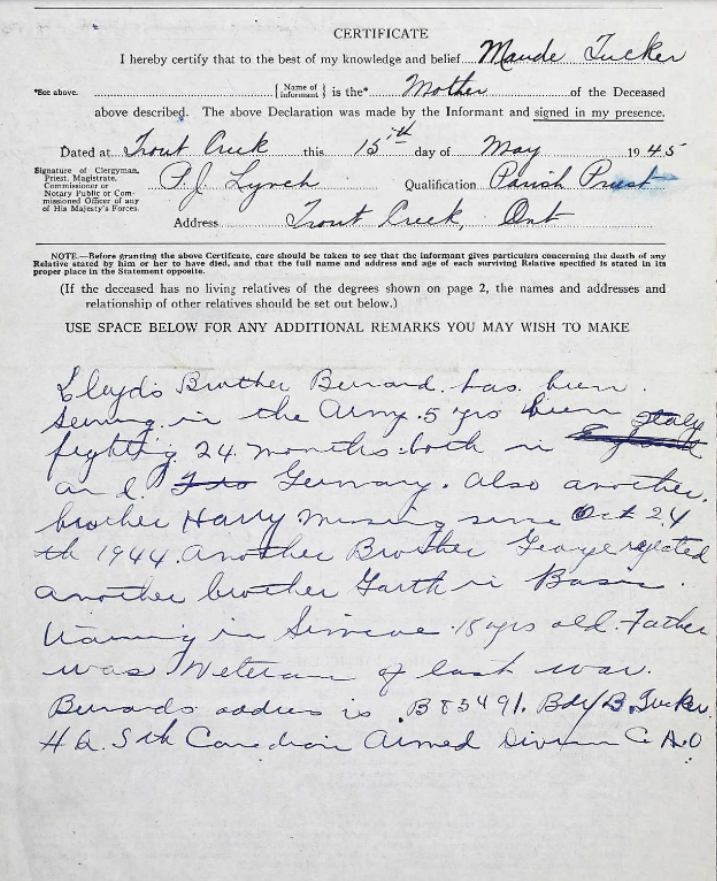 CERTIFICATE
I hereby certify that to the best of my knowledge and belief Maude Tucker
*See above. { Name of informant } is the* Mother of the Deceased
above described. The above Declaration was made by the Informant and signed in my presence.
Dated at Trout Creek this 15th day of May 1945
Signature of Clergyman, Priest, Magistrate, Commissioner or Notary Public or Commissioned Officer of any of His Majesty's Forces. P.J. Lynch Qualification Parish Priest
Address Trout Creek, Ont
NOTE.—Before granting the above Certificate, care should be taken to see that the informant gives particulars concerning the death of any
Relative stated by him or her to have died, and that the full name and address and age of each surviving Relative specified is stated in its
proper place in the Statement opposite.
(If the deceased has no living relatives of the degrees shown on page 2, the names and addresses and
relationship of other relatives should be set out below.)
USE SPACE BELOW FOR ANY ADDITIONAL REMARKS YOU MAY WISH TO MAKE
Lloyds Brother Bernard has been
serving in the Army 5 yrs been Italy
fighting 24 months both in England
and Germany. Also another
brother Harry missing since Oct 24
th 1944. Another Brother George rejected
another brother Garth in Basic
training in Simcoe 18 yrs old. Father
was Veteran of last war.
Bernards address is B83491. Bdr B. Tucker.
H Q. 5th Canadian Armed Division C A.O